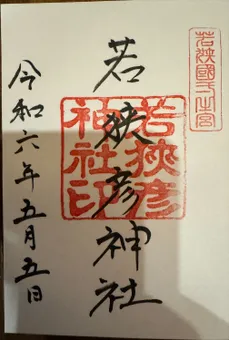 若狹國一之宮
若狹彦神社
若狹彦
神社印
令和六年五月五日